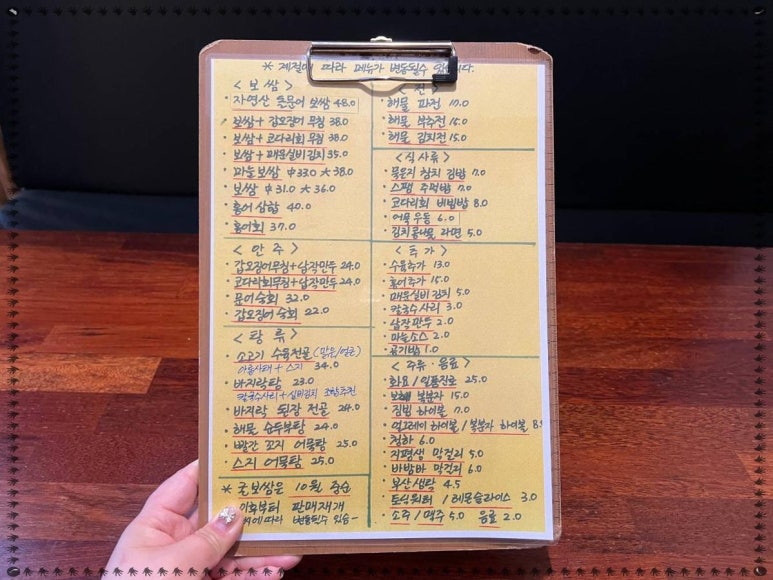 * 계절에 따라 메뉴가 변동될수 있습니다.
< 보쌈 >
· 자연산 돌문어 보쌈 48.0
· 보쌈 + 갑오징어 무침 38.0
· 보쌈 + 코다리회 무침 38.0
· 보쌈 + 매운실비김치 35.0
· 마늘보쌈 中33.0 大38.0
· 보쌈 中31.0 大36.0
· 홍어 삼합 40.0
· 홍어회 37.0
< 안 주 >
· 갑오징어무침+납작만두 24.0
· 코다리회무침+납작만두 24.0
· 문어숙회 32.0
· 갑오징어 숙회 22.0
< 탕 류 >
· 소고기 수육전골 (맑은/얼큰)
아롱사태 + 스지 34.0
· 바지락탕 23.0
칼국수사리 + 실비김치 조합추천
· 바지락 된장 전골 24.0
· 해물 순두부탕 24.0
· 빨간 꼬지 어묵탕 25.0
· 스지 어묵탕 25.0
* 굴보쌈은 10월 중순
이후부터 판매재개
에따라 변동될수 있음~
< 전 >
· 해물 파전 17.0
· 해물 부추전 15.0
· 해물 김치전 15.0
< 식사류 >
· 묵은지 참치 김밥 7.0
· 스팸 주먹밥 7.0
· 코다리회 비빔밥 8.0
· 어묵우동 6.0
· 김치콩나물 라면 5.0
< 추 가 >
· 수육추가 13.0
· 홍어추가 15.0
· 매운실비김치 5.0
· 칼국수사리 3.0
· 납작만두 2.0
· 마늘소스 2.0
· 공기밥 1.0
< 주류 · 음료 >
· 화요 / 일품진로 25.0
· 보해 복분자 15.0
· 짐빔 하이볼 7.0
· 얼그레이 하이볼 / 복분자 하이볼 8.
· 청하 6.0
· 지평생 막걸리 5.0
· 바밤바 막걸리 6.0
· 부산생탁 4.5
· 토닉워터 / 레몬슬라이스 3.0
· 소주 / 맥주 5.0 음료 2.0